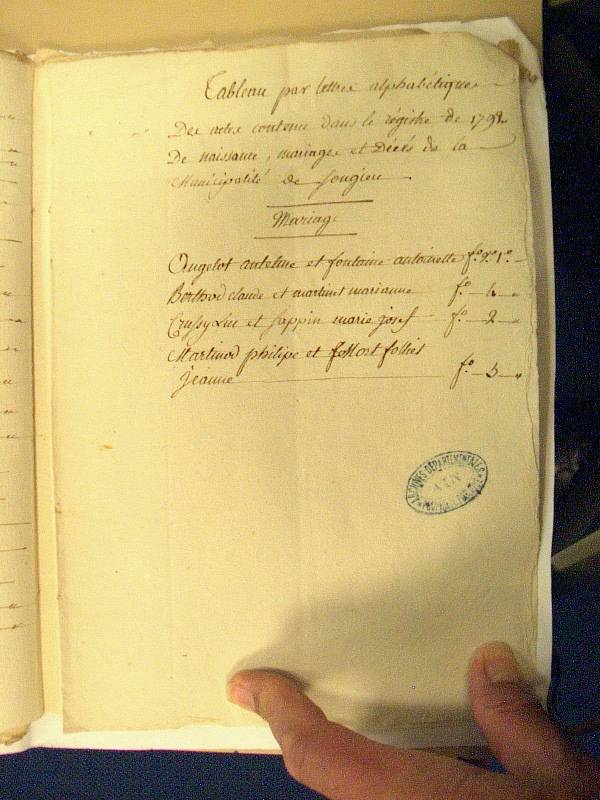 Tableau par lettres alphabétiques
Des actes contenu dans le régistre de 1792
De naissance, mariages et Décès de la
Municipalité de Songieu
Mariage
antelme et fontaine antoinette f.º
Berthod claude et martinet marianne f.º 4 "
Cressy Luc et Jappin marie josef f.º 2 "
Martinod philipe et follies
Jeanne f.º 3 "
ARCHIVES DÉPARTEMENTALES
AIN